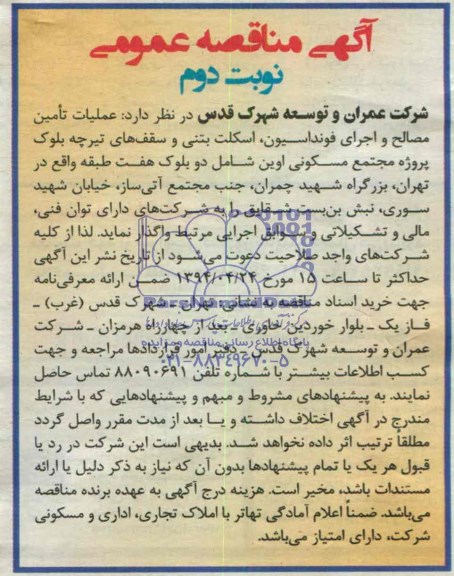 آگهی مناقصه عمومی
نوبت دوم
شرکت عمران و توسعه شهرک قدس در نظر دارد: عملیات تأمین
مصالح و اجرای فونداسیون، اسکلت بتنی و سقف‌های تیرچه بلوک
پروژه مجتمع مسکونی اوین شامل دو بلوک هفت طبقه واقع در
تهران، بزرگراه شهید چمران، جنب مجتمع آتی‌ساز، خیابان شهید
سوری، نبش بن‌بست شقایق را به شرکت‌های دارای توان فنی،
مالی و تشکیلاتی و سوابق اجرایی مرتبط واگذار نماید. لذا از کلیه
شرکت‌های واجد صلاحیت دعوت می‌شود از تاریخ نشر این آگهی
حداکثر تا ساعت ۱۵ مورخ ۱۳۹۴/۰۴/۲۴ ضمن ارائه معرفی‌نامه
جهت خرید اسناد مناقصه به نشانی: تهران ـ شهرک قدس (غرب) ـ
فاز یک ـ بلوار خوردین خاوری ـ بعد از چهارراه هرمزان ـ شرکت
پایگاه اطلاع رسانی مناقصه و مزایده
عمران و توسعه شهرک قدس ـ دفتر امور قراردادها مراجعه و جهت
۰۲۱-۸۸۳۴۹۶۷۰-۵
کسب اطلاعات بیشتر با شماره تلفن ۸۸۰۹۰۶۹۱ تماس حاصل
نمایند. به پیشنهادهای مشروط و مبهم و پیشنهادهایی که با شرایط
مندرج در آگهی اختلاف داشته و یـا بعد از مدت مقرر واصل گردد
مطلقاً ترتیب اثر داده نخواهد شـد. بدیهی است این شرکت در رد یا
قبول هر یک یا تمام پیشنهادها بدون آن که نیاز به ذکر دلیل یا ارائه
مستندات باشد، مخیر است. هزینه درج آگهی به عهده برنده مناقصه
می‌باشد. ضمناً اعلام آمادگی تهاتر با املاک تجاری، اداری و مسکونی
شرکت، دارای امتیاز می‌باشد.